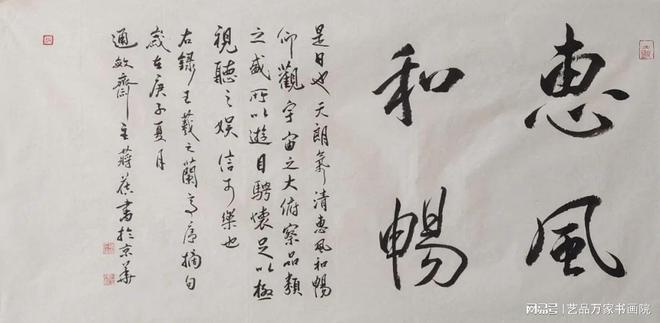 惠風
和暢
是日也天朗氣清惠風和暢
仰觀宇宙之大俯察品類
之盛所以遊目騁懷足以極
視聽之娛信可樂也
右錄王羲之蘭亭序摘句
歲在庚子夏月
通敏齋主蔣葆書於京華
网易号 | 艺品万家书画院